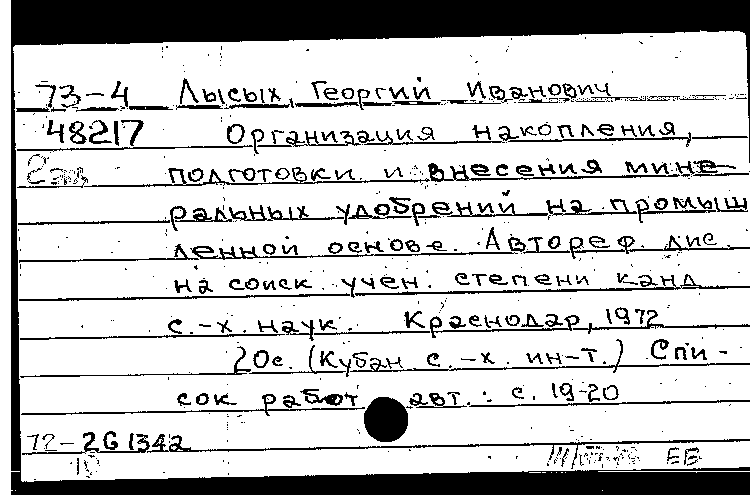 73-4 Лысых, Георгий Иванович
48217 Организация накопления,
2 экз подготовки и внесения мине-
ральных удобрений на промыш
ленной основе. Автореф. дис.
на соиск. учен. степени канд
с.-х. наук. Краснодар, 1972
20с. (Кубан с.-х. ин-т.) Спи-
сок работ авт.: с. 19-20
72-2G1342
10 ЕВ